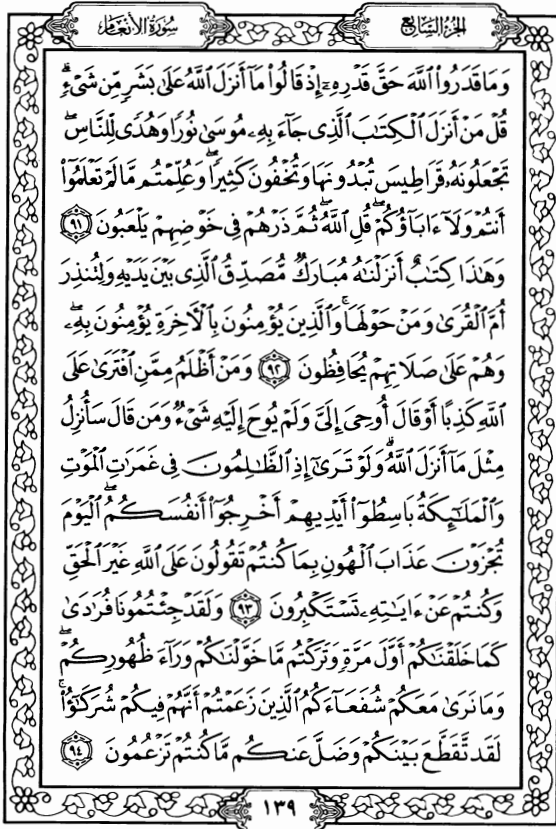 سُورَةُ الأَنْعَام
الجُزْءُ السَّابِعُ
وَمَا قَدَرُوا۟ ٱللَّهَ حَقَّ قَدْرِهِۦٓ إِذْ قَالُوا۟ مَآ أَنزَلَ ٱللَّهُ عَلَىٰ بَشَرٍ مِّن شَىْءٍۗ
قُلْ مَنْ أَنزَلَ ٱلْكِتَـٰبَ ٱلَّذِى جَآءَ بِهِۦ مُوسَىٰ نُورًا وَهُدًى لِّلنَّاسِۖ
تَجْعَلُونَهُۥ قَرَاطِيسَ تُبْدُونَهَا وَتُخْفُونَ كَثِيرًاۖ وَعُلِّمْتُم مَّا لَمْ تَعْلَمُوٓا۟
أَنتُمْ وَلَآ ءَابَآؤُكُمْۖ قُلِ ٱللَّهُۖ ثُمَّ ذَرْهُمْ فِى خَوْضِهِمْ يَلْعَبُونَ ٩١
وَهَـٰذَا كِتَـٰبٌ أَنزَلْنَـٰهُ مُبَارَكٌ مُّصَدِّقُ ٱلَّذِى بَيْنَ يَدَيْهِ وَلِتُنذِرَ
أُمَّ ٱلْقُرَىٰ وَمَنْ حَوْلَهَاۚ وَٱلَّذِينَ يُؤْمِنُونَ بِٱلْـَٔاخِرَةِ يُؤْمِنُونَ بِهِۦۖ
وَهُمْ عَلَىٰ صَلَاتِهِمْ يُحَافِظُونَ ٩٢ وَمَنْ أَظْلَمُ مِمَّنِ ٱفْتَرَىٰ عَلَى
ٱللَّهِ كَذِبًا أَوْ قَالَ أُوحِىَ إِلَىَّ وَلَمْ يُوحَ إِلَيْهِ شَىْءٌ وَمَن قَالَ سَأُنزِلُ
مِثْلَ مَآ أَنزَلَ ٱللَّهُۗ وَلَوْ تَرَىٰٓ إِذِ ٱلظَّـٰلِمُونَ فِى غَمَرَٰتِ ٱلْمَوْتِ
وَٱلْمَلَـٰٓئِكَةُ بَاسِطُوٓا۟ أَيْدِيهِمْ أَخْرِجُوٓا۟ أَنفُسَكُمُۖ ٱلْيَوْمَ
تُجْزَوْنَ عَذَابَ ٱلْهُونِ بِمَا كُنتُمْ تَقُولُونَ عَلَى ٱللَّهِ غَيْرَ ٱلْحَقِّ
وَكُنتُمْ عَنْ ءَايَـٰتِهِۦ تَسْتَكْبِرُونَ ٩٣ وَلَقَدْ جِئْتُمُونَا فُرَٰدَىٰ
كَمَا خَلَقْنَـٰكُمْ أَوَّلَ مَرَّةٍ وَتَرَكْتُم مَّا خَوَّلْنَـٰكُمْ وَرَآءَ ظُهُورِكُمْۖ
وَمَا نَرَىٰ مَعَكُمْ شُفَعَآءَكُمُ ٱلَّذِينَ زَعَمْتُمْ أَنَّهُمْ فِيكُمْ شُرَكَـٰٓؤُا۟ۚ
لَقَد تَّقَطَّعَ بَيْنَكُمْ وَضَلَّ عَنكُم مَّا كُنتُمْ تَزْعُمُونَ ٩٤
١٣٩